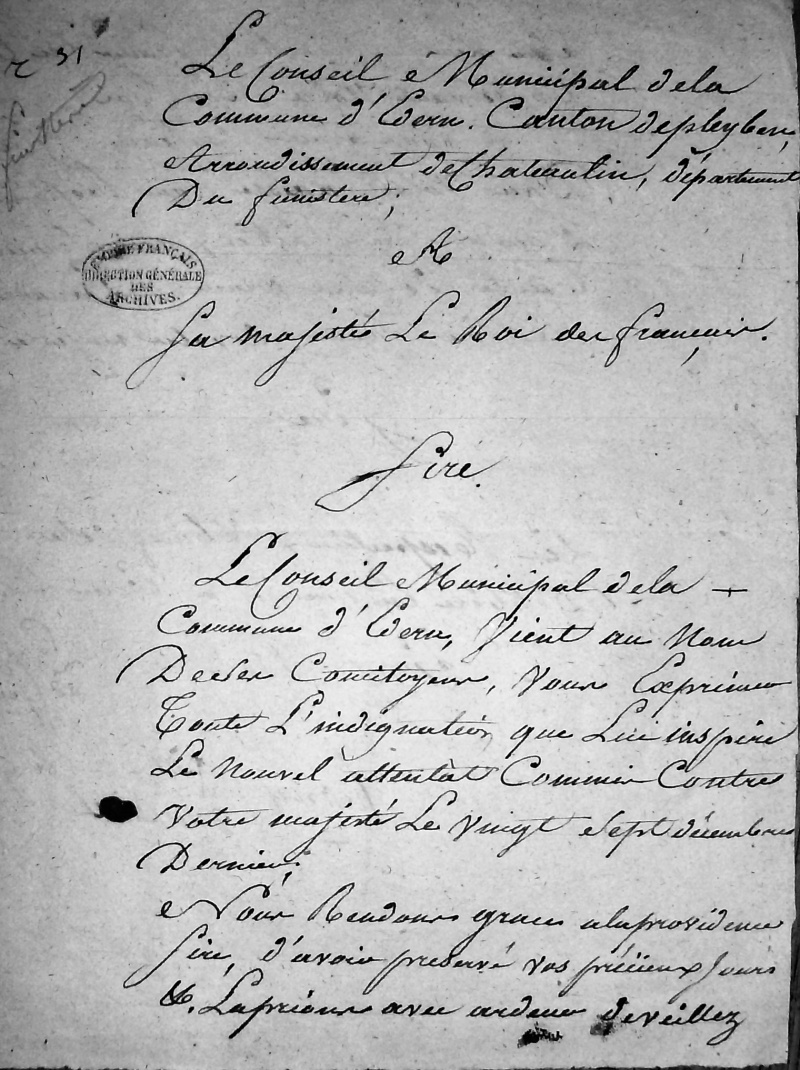 31
Le Conseil Municipal de la
Commune d'Edern. Canton de pleyben,
Arrondissement de Chateaulin, département
Du finistere,
A
Sa majesté Le Roi des français.
finistere
EMPIRE FRANÇAIS
DIRECTION GÉNÉRALE
DES
ARCHIVES.
Sire.
Le Conseil Municipal de la
Commune d'Edern, Vient au Nom
De ses Concitoyens, Vous Exprimer
Toute L'indignation que Lui inspire
Le Nouvel attentat Commis Contre
Votre majesté Le Vingt Sept décembre
Dernier;
Nous Rendons grace a la providence
Sire, d'avoir preservé vos précieux Jours
&. La prions avec ardeur de veillez